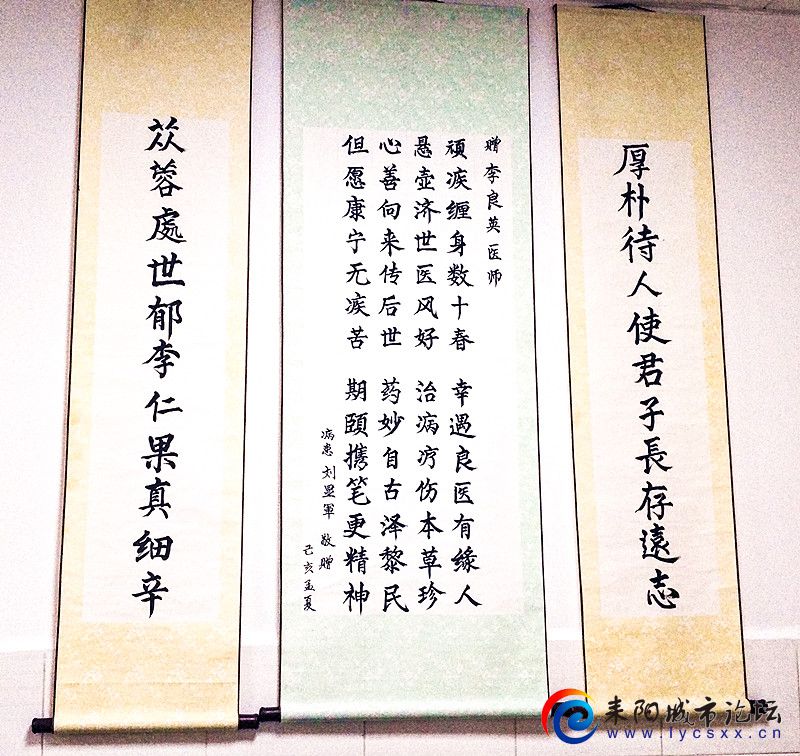 厚朴待人使君子長存遠志
贈李良英医师
顽疾缠身数十春 幸遇良医有缘人
悬壶济世医风好 治病疗伤本草珍
心善向来传后世 药妙自古泽黎民
但愿康宁无疾苦 期颐携笔更精神
病患刘显軍 敬贈
己亥孟夏
苁蓉處世郁李仁果真细辛
耒阳城市论坛
www.lycsxx.cn